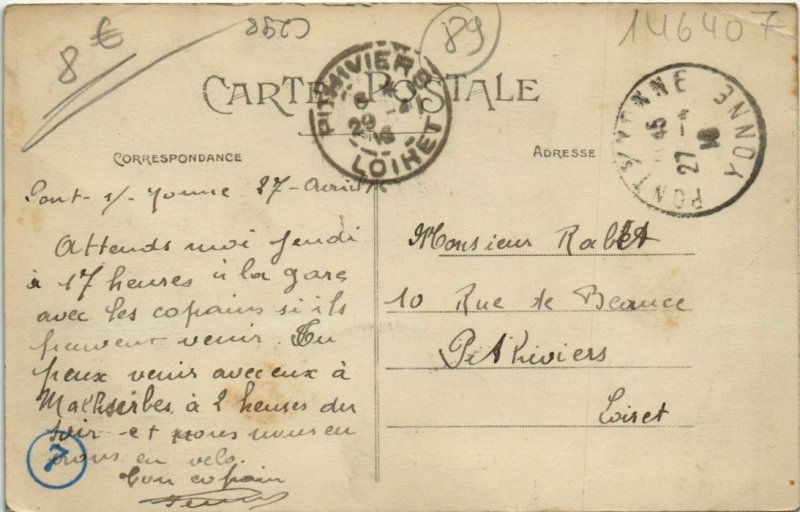 8 €
8520
89
146407
CARTE POSTALE
PITHIVIERS
LOIRET
PONT S/YONNE YONNE
45
27 - 4
CORRESPONDANCE
ADRESSE
Pont s/ Yonne 27 - Avril
Attends moi jeudi
à 17 heures à la gare
avec les copains si ils
peuvent venir. Tu
peux venir avec eux à
Malhserbes à 2 heures du
soir et nous nous en
irons en vélo.
Ton copain
7
Monsieur
10 Rue de Beauce
Pithiviers
Loiret